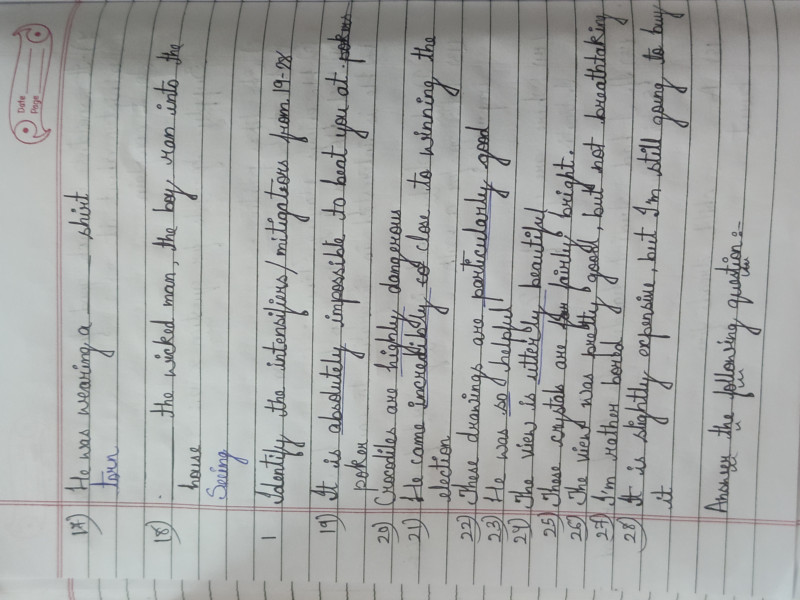 Date
Page
17) He was wearing a ____ shirt
torn
18) . the wicked man, the boy ran into the
house
Seeing
1 Identify the intensifiers/mitigations from 19-28
19) It is absolutely impossible to beat you at poker
poker
20) Crocodiles are highly dangerous
21) He came incredibly so close to winning the
election
22) These drawings are particularly good
23) He was so helpful!
24) The view is utterly beautiful
25) These crystals are fairly bright.
26) The view was pretty good, but not breathtaking
27) I'm rather bored
28) It is slightly expensive, but I'm still going to buy
it
Answer the following question :-